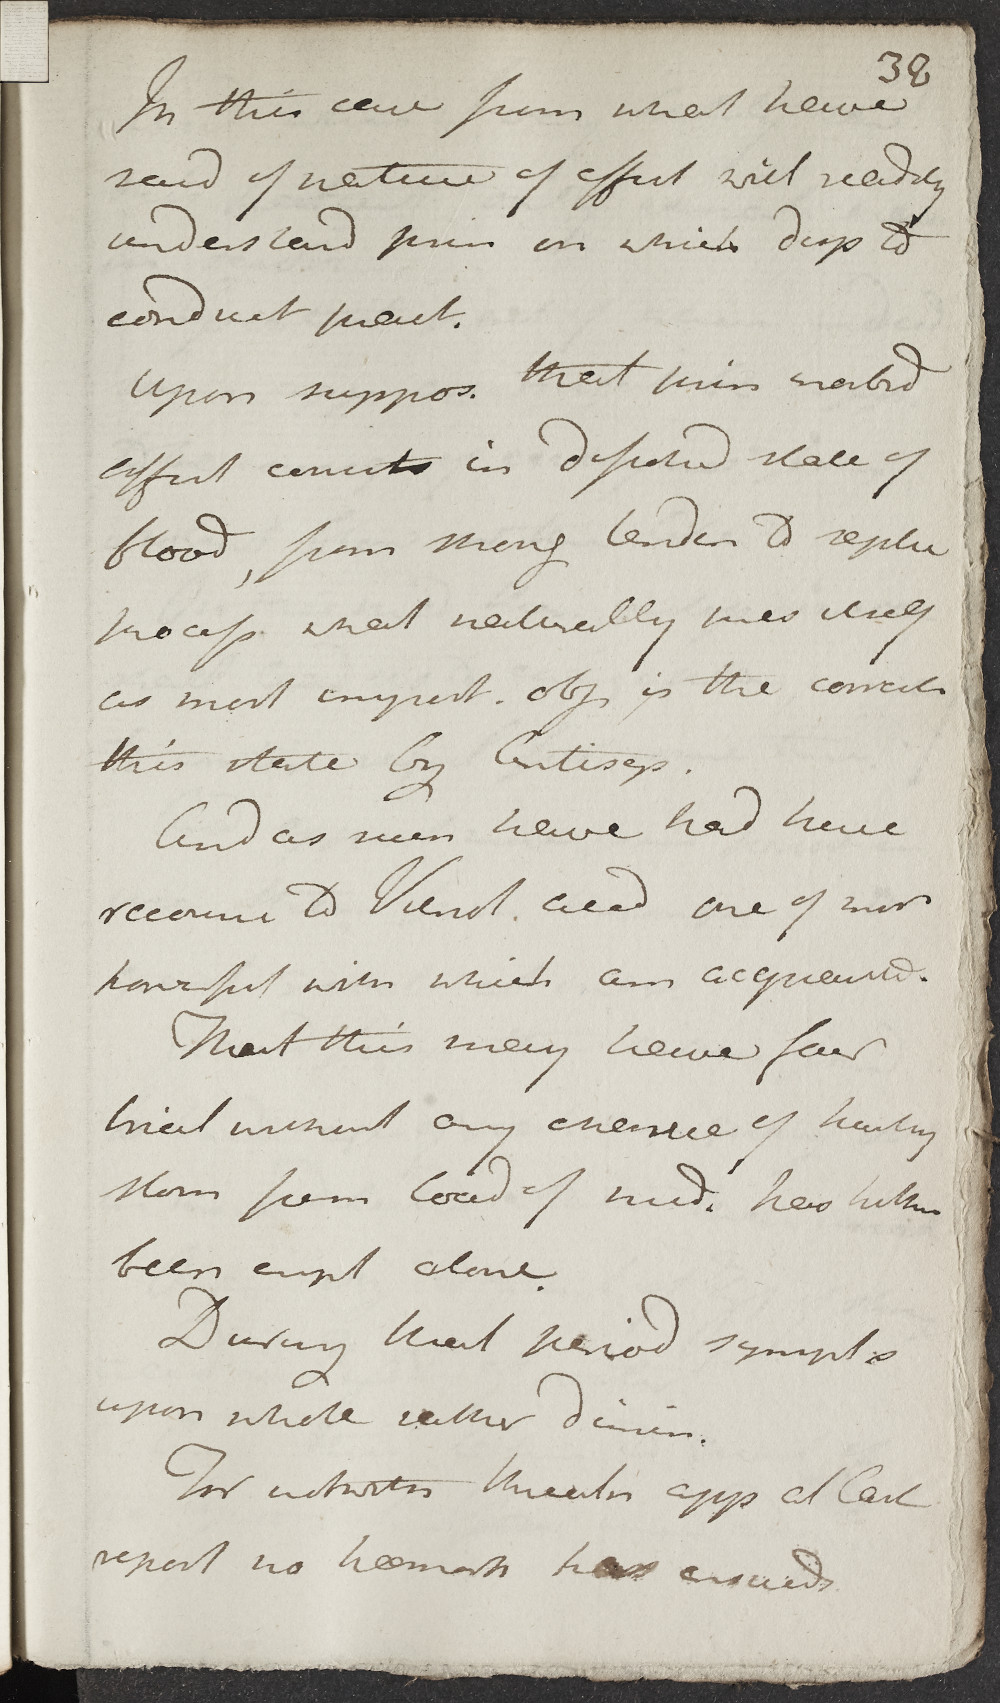 38
In this case from what have
said of nature of affect will readily
understand prin on which disp to
conduct pract.
Upon suppos. that prim morbid
affect consists in dissolved state of
blood, from strong tenden to septic
process what naturally pres itself
as most import. obj. is the correctn
this state by Antisep.
And as such have had here
recourse to Vitriol. acid one of most
powerful with which am acquainted.
That this may have fair
trial without any chance of hurting
stom from load of med. has hither
been empl alone.
During that period sympts
upon whole rather dimin.
For notwithn threatn app at last
report no hæmorh has ensued